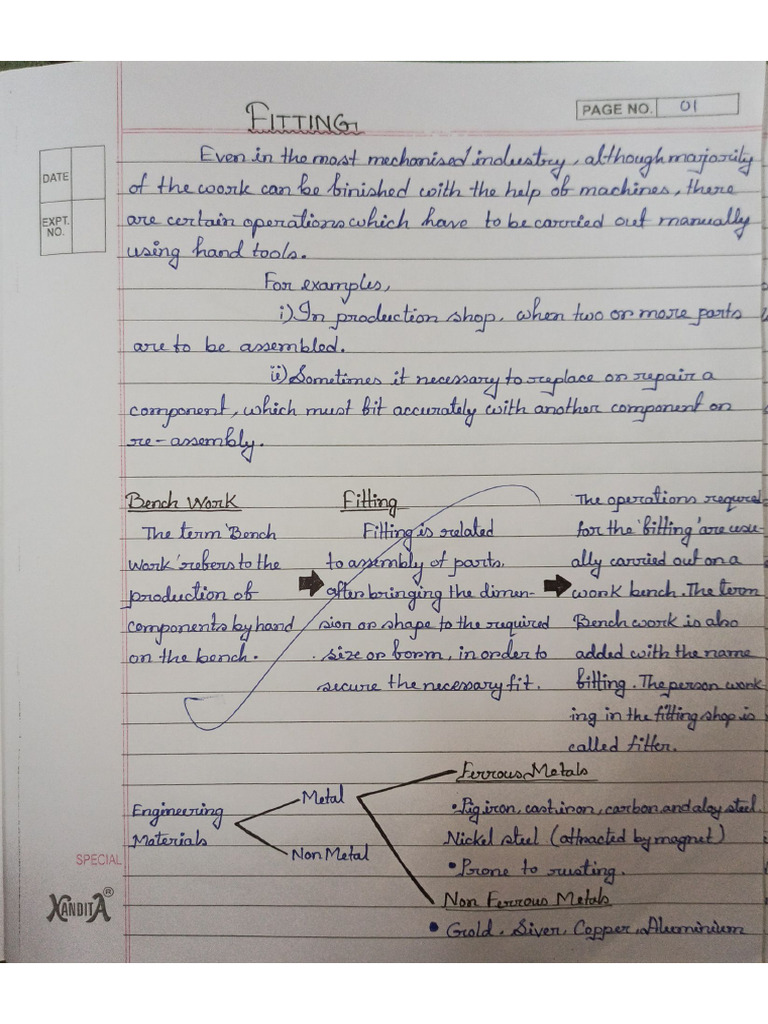 FITTING
PAGE NO. 01
DATE
EXPT. NO.
Even in the most mechanised industry, although majority
of the work can be finished with the help of machines, there
are certain operations which have to be carried out manually
using hand tools.
For examples,
i) In production shop, when two or more parts
are to be assembled.
ii) Sometimes it necessary to replace or repair a
component, which must fit accurately with another component on
re-assembly.
Bench Work
The term 'Bench
Work' refers to the
production of
components by hand
on the bench.
Fitting
Fitting is related
to assembly of parts,
after bringing the dimen-
sion or shape to the required
size or form, in order to
secure the necessary fit.
The operations required
for the 'fitting' are usu-
ally carried out on a
work bench. The term
Bench work is also
added with the name
fitting. The person work-
ing in the fitting shop is
called fitter.
Engineering
Materials
Metal
Non Metal
Ferrous Metals
• Pig iron, cast iron, carbon and aloy steel.
Nickel steel (attracted by magnet)
• Prone to rusting.
Non Ferrous Metals
• Gold, Siver, Copper, Aluminium
SPECIAL
XANDITA®